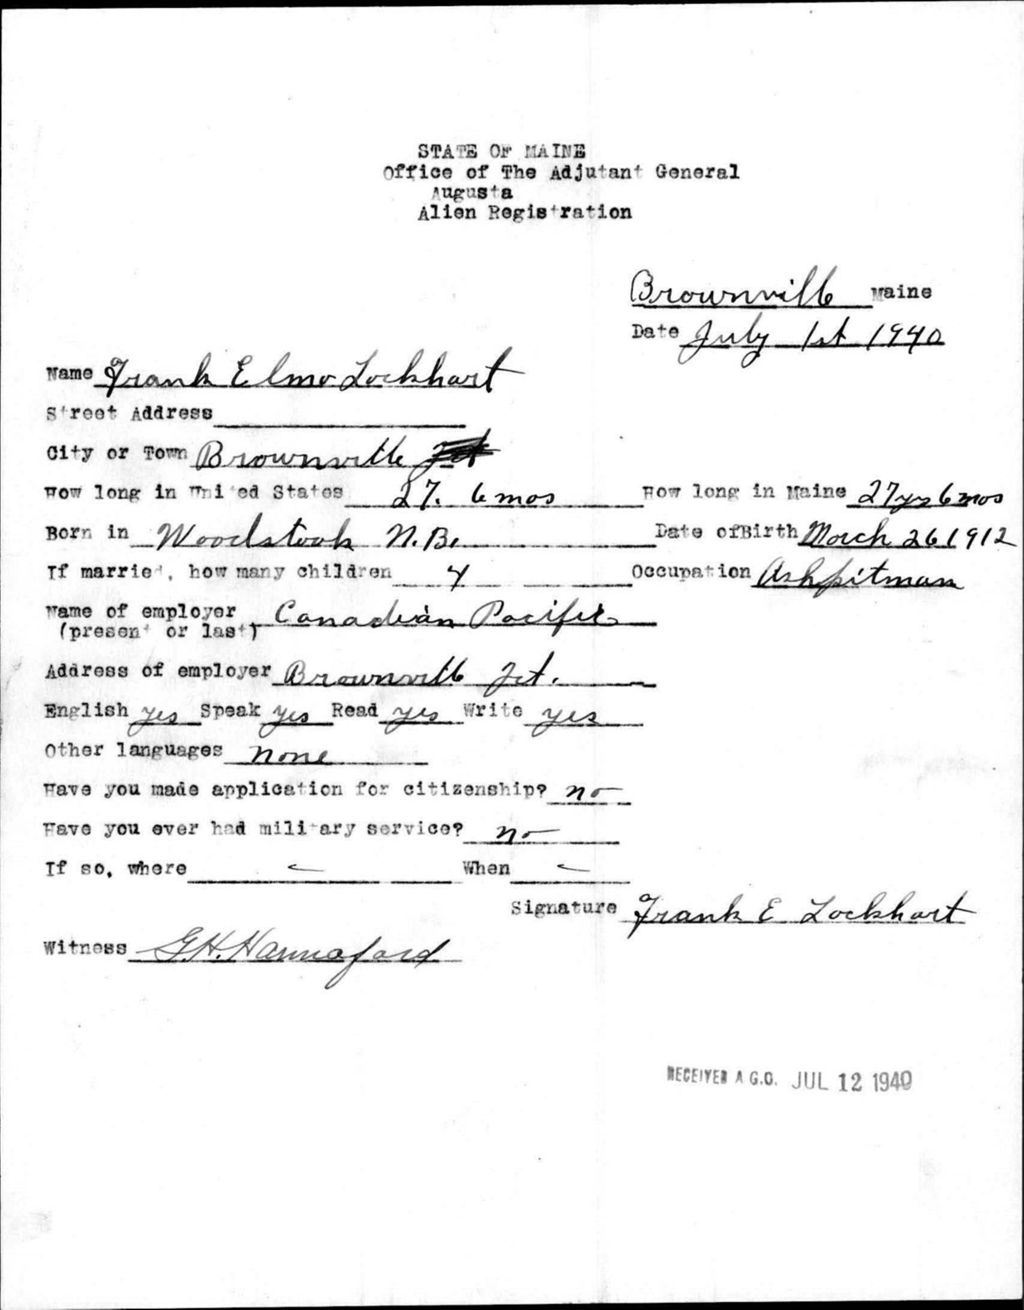 STATE OF MAINE
Office of The Adjutant General
Augusta
Alien Registration
Brownville Maine
Date July 1st 1940
Name Frank Elmo Lockhart
Street Address
City or Town Brownville
How long in United States 27. 6 mos How long in Maine 27 yrs 6 mos
Born in Woodstock N.B. Date ofBirth March 26 1912
If married, how many children 4 Occupation Ashpitman
Name of employer Canadian Pacific
(present or last)
Address of employer Brownville Jct.
English yes Speak yes Read yes Write yes
Other languages none
Have you made application for citizenship? no
Have you ever had military service? no
If so, where — When —
Signature Frank E Lockhart
Witness G.H. Hannaford
RECEIVED A.G.O. JUL 12 1940